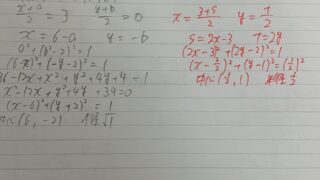 x+a/2 = 3   y+b/2 = 0
x = 6-a   y = -b
a²+(b-2)²=1
(6-x)²+(-y-2)²=1
36-12x+x²+y²+4y+4=1
x²-12x+y²+4y+39=0
(x-6)²+(y+2)²=1
中心(6, -2)   半径√1
x = 3+S/2   y = T/2
S=2x-3   T=2y
(2x-3)²+(2y-2)²=1
(x-3/2)²+(y-1)²=(1/2)²
中心(1/2, 1)   半径1/2